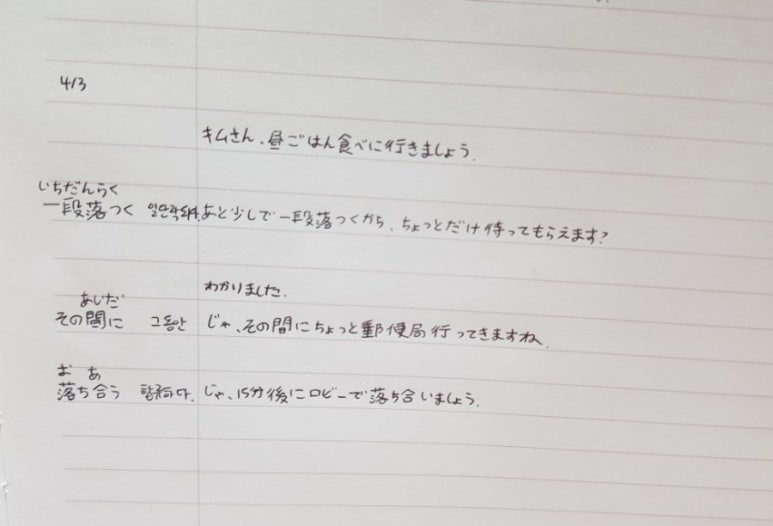 4/3
キムさん、昼ごはん食べに行きましょう.
いちだんらく
一段落つく あと少しで一段落つくから、ちょっとだけ待ってもらえます?
わかりました.
あいだ
その間に 그동안 じゃ、その間にちょっと郵便局行ってきますね.
お あ
落ち合う じゃ、15分後にロビーで落ち合いましょう.